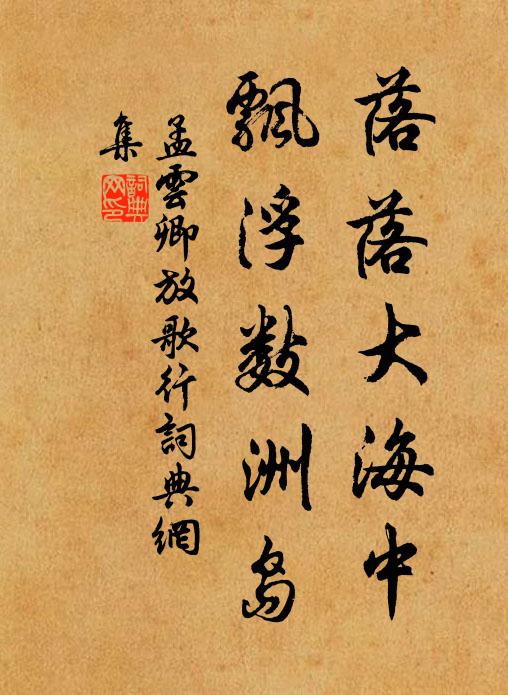 落落大海中
飄浮數洲島
孟雲卿放歌行詞典網
集
詞典
网印